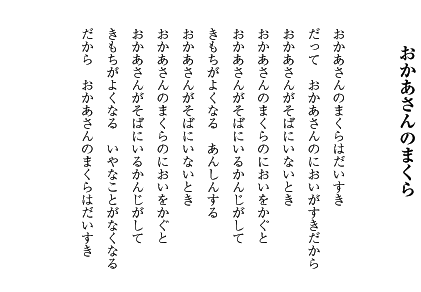 おかあさんのまくら
おかあさんのまくらはだいすき
だって　おかあさんのにおいがすきだから
おかあさんがそばにいないとき
おかあさんのまくらのにおいをかぐと
おかあさんがそばにいるかんじがして
きもちがよくなる　あんしんする
おかあさんがそばにいないとき
おかあさんのまくらのにおいをかぐと
おかあさんがそばにいるかんじがして
きもちがよくなる　いやなことがなくなる
だから　おかあさんのまくらはだいすき